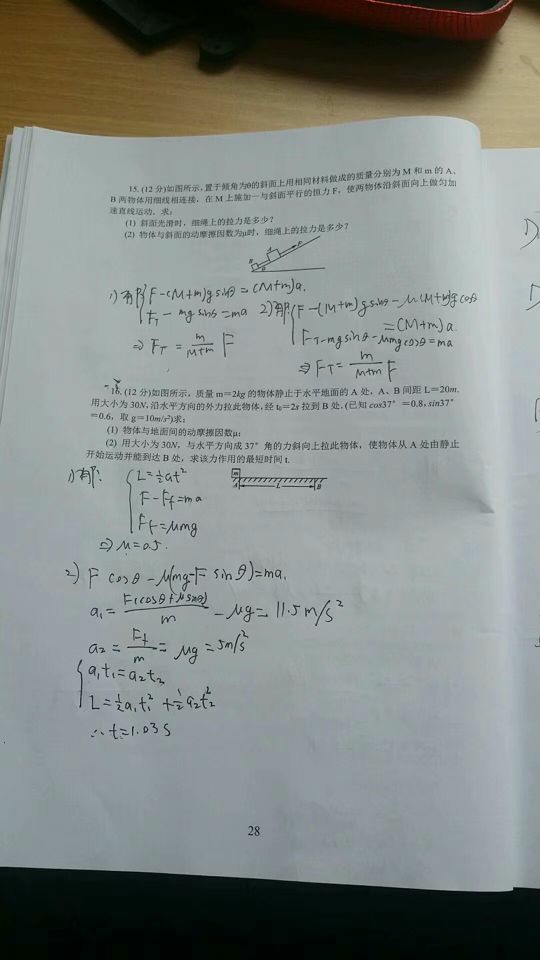 15. (12 分)如图所示，置于倾角为θ的斜面上用相同材料做成的质量分别为 M 和 m 的 A、
B 两物体用细线相连接，在 M 上施加一与斜面平行的恒力 F，使两物体沿斜面向上做匀加
速直线运动。求：
(1) 斜面光滑时，细绳上的拉力是多少？
(2) 物体与斜面的动摩擦因数为μ时，细绳上的拉力是多少？
1) 有 F-(M+m)g sinθ = (M+m)a.
F_T - mg sinθ = ma
⇒ F_T = m/(M+m) F
2) 有 F-(M+m)g sinθ - μ(M+m)g cosθ
= (M+m)a
F_T - mg sinθ - μmg cosθ = ma
⇒ F_T = m/(M+m) F
16. (12 分)如图所示，质量 m=2kg 的物体静止于水平地面的 A 处，A、B 间距 L=20m.
用大小为 30N，沿水平方向的外力拉此物体，经 t₀=2s 拉到 B 处. (已知 cos37° =0.8, sin37°
=0.6，取 g=10m/s²)求：
(1) 物体与地面间的动摩擦因数μ;
(2) 用大小为 30N，与水平方向成 37° 角的力斜向上拉此物体，使物体从 A 处由静止
开始运动并能到达 B 处，求该力作用的最短时间 t.
m
A L B
1) 有 L=½at²
F-F_f=ma
F_f=μmg
⇒ μ=0.5.
2) F cosθ-μ(mg-F sinθ)=ma.
a₁= F(cosθ+μsinθ)/m - μg = 11.5 m/s²
a₂= F_f/m = μg = 5m/s²
a₁t₁=a₂t₂
L=½a₁t₁² + ½a₂t₂²
∴ t=1.03 s
28